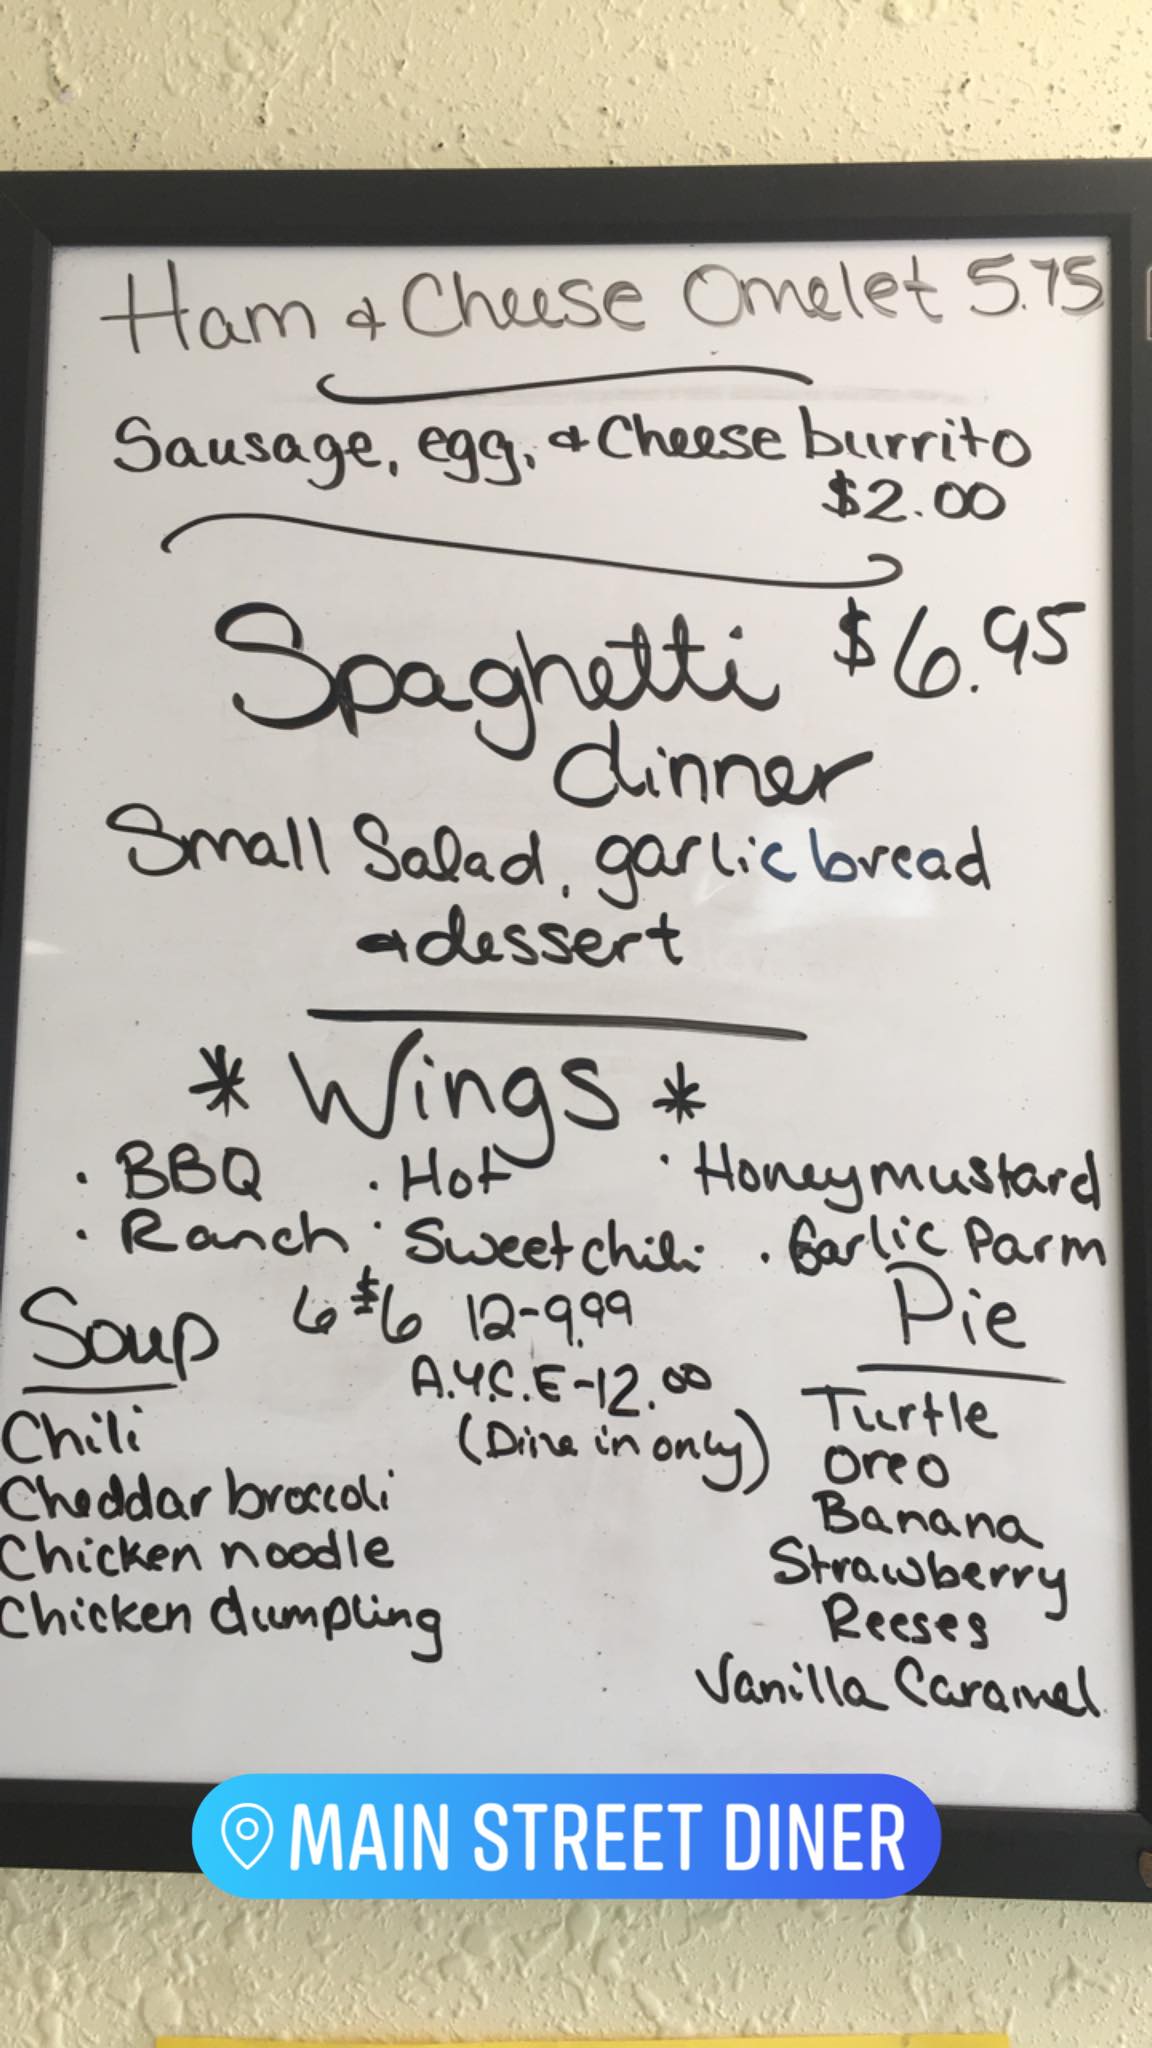 Ham & Cheese Omelet 5.75
Sausage, egg, & Cheese burrito
$2.00
Spaghetti $6.95
dinner
Small Salad, garlic bread
& dessert
* Wings *
· BBQ · Hot · Honey mustard
· Ranch · Sweet chili · Garlic Parm
6 $6 12-9.99
A.Y.C.E-12.00
(Dine in only)
Soup
Chili
Cheddar broccoli
Chicken noodle
Chicken dumpling
Pie
Turtle
Oreo
Banana
Strawberry
Reeses
Vanilla Caramel
MAIN STREET DINER